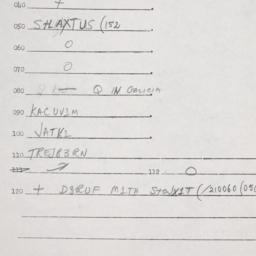 040 +
050 SHAXTUS (152
060 0
070 0
080 Q IN GALICIA
090 KACUVIM
100 JATKI
110 TREJBERN
112 0
120 + D3RUF MITA (/210060 (05